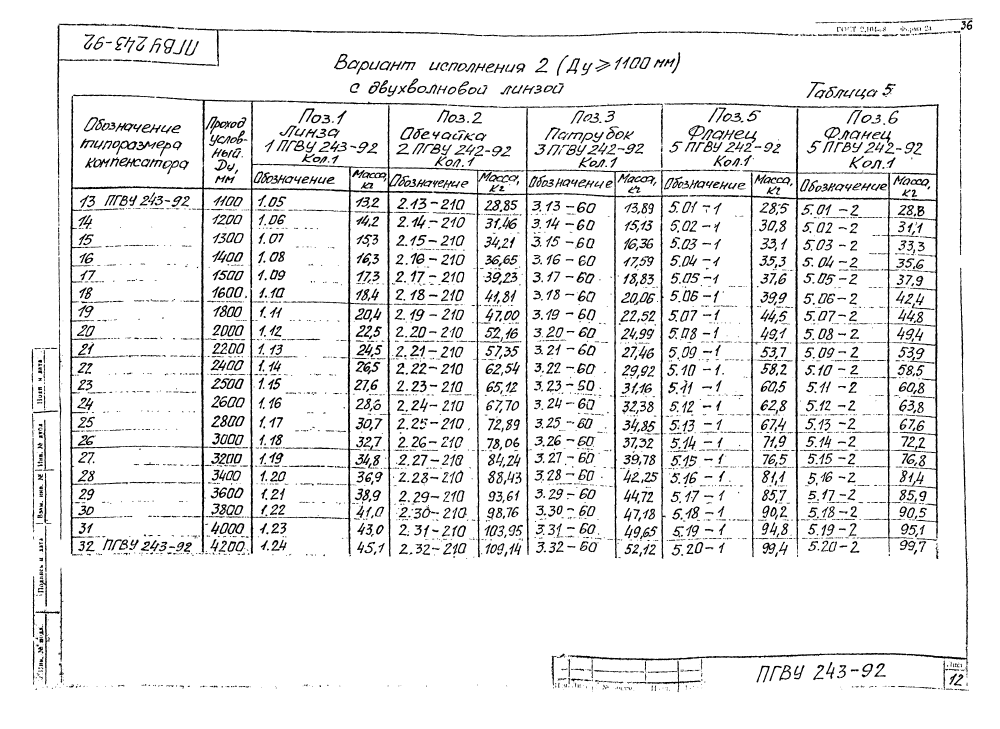 36
ГОСТ 2.104-68 Форма 2а
ПГВУ 243-92
Вариант исполнения 2 (Ду ≥ 1100 мм)
с двухволновой линзой
Таблица 5
Обозначение типоразмера компенсатора | Проход услов-ный. Ду, мм | Поз.1 Линза 1 ПГВУ 243-92 Кол.1 | Поз.2 Обечайка 2 ПГВУ 242-92 Кол.1 | Поз.3 Патрубок 3 ПГВУ 242-92 Кол.1 | Поз.5 Фланец 5 ПГВУ 242-92 Кол.1 | Поз.6 Фланец 5 ПГВУ 242-92 Кол.1
Обозначение | Масса, кг | Обозначение | Масса, кг | Обозначение | Масса, кг | Обозначение | Масса, кг | Обозначение | Масса, кг
13 ПГВУ 243-92 | 1100 | 1.05 | 13,2 | 2.13-210 | 28,85 | 3.13-60 | 13,89 | 5.01-1 | 28,5 | 5.01-2 | 28,8
14 | 1200 | 1.06 | 14,2 | 2.14-210 | 31,46 | 3.14-60 | 15,13 | 5.02-1 | 30,8 | 5.02-2 | 31,1
15 | 1300 | 1.07 | 15,3 | 2.15-210 | 34,21 | 3.15-60 | 16,36 | 5.03-1 | 33,1 | 5.03-2 | 33,3
16 | 1400 | 1.08 | 16,3 | 2.16-210 | 36,65 | 3.16-60 | 17,59 | 5.04-1 | 35,3 | 5.04-2 | 35,6
17 | 1500 | 1.09 | 17,3 | 2.17-210 | 39,23 | 3.17-60 | 18,83 | 5.05-1 | 37,6 | 5.05-2 | 37,9
18 | 1600 | 1.10 | 18,4 | 2.18-210 | 41,81 | 3.18-60 | 20,06 | 5.06-1 | 39,9 | 5.06-2 | 42,4
19 | 1800 | 1.11 | 20,4 | 2.19-210 | 47,00 | 3.19-60 | 22,52 | 5.07-1 | 44,5 | 5.07-2 | 44,8
20 | 2000 | 1.12 | 22,5 | 2.20-210 | 52,16 | 3.20-60 | 24,99 | 5.08-1 | 49,1 | 5.08-2 | 49,4
21 | 2200 | 1.13 | 24,5 | 2.21-210 | 57,35 | 3.21-60 | 27,46 | 5.09-1 | 53,7 | 5.09-2 | 53,9
22 | 2400 | 1.14 | 26,5 | 2.22-210 | 62,54 | 3.22-60 | 29,92 | 5.10-1 | 58,2 | 5.10-2 | 58,5
23 | 2500 | 1.15 | 27,6 | 2.23-210 | 65,12 | 3.23-60 | 31,16 | 5.11-1 | 60,5 | 5.11-2 | 60,8
24 | 2600 | 1.16 | 28,6 | 2.24-210 | 67,70 | 3.24-60 | 32,38 | 5.12-1 | 62,8 | 5.12-2 | 63,8
25 | 2800 | 1.17 | 30,7 | 2.25-210 | 72,89 | 3.25-60 | 34,85 | 5.13-1 | 67,4 | 5.13-2 | 67,6
26 | 3000 | 1.18 | 32,7 | 2.26-210 | 78,06 | 3.26-60 | 37,32 | 5.14-1 | 71,9 | 5.14-2 | 72,2
27 | 3200 | 1.19 | 34,8 | 2.27-210 | 84,24 | 3.27-60 | 39,78 | 5.15-1 | 76,5 | 5.15-2 | 76,8
28 | 3400 | 1.20 | 36,9 | 2.28-210 | 88,43 | 3.28-60 | 42,25 | 5.16-1 | 81,1 | 5.16-2 | 81,4
29 | 3600 | 1.21 | 38,9 | 2.29-210 | 93,61 | 3.29-60 | 44,72 | 5.17-1 | 85,7 | 5.17-2 | 85,9
30 | 3800 | 1.22 | 41,0 | 2.30-210 | 98,76 | 3.30-60 | 47,18 | 5.18-1 | 90,2 | 5.18-2 | 90,5
31 | 4000 | 1.23 | 43,0 | 2.31-210 | 103,95 | 3.31-60 | 49,65 | 5.19-1 | 94,8 | 5.19-2 | 95,1
32 ПГВУ 243-92 | 4200 | 1.24 | 45,1 | 2.32-210 | 109,14 | 3.32-60 | 52,12 | 5.20-1 | 99,4 | 5.20-2 | 99,7
Инв. № подл.
Подпись и дата
Взам. инв. №
Инв. № дубл
Подп. и дата
ПГВУ 243-92
Лист
12